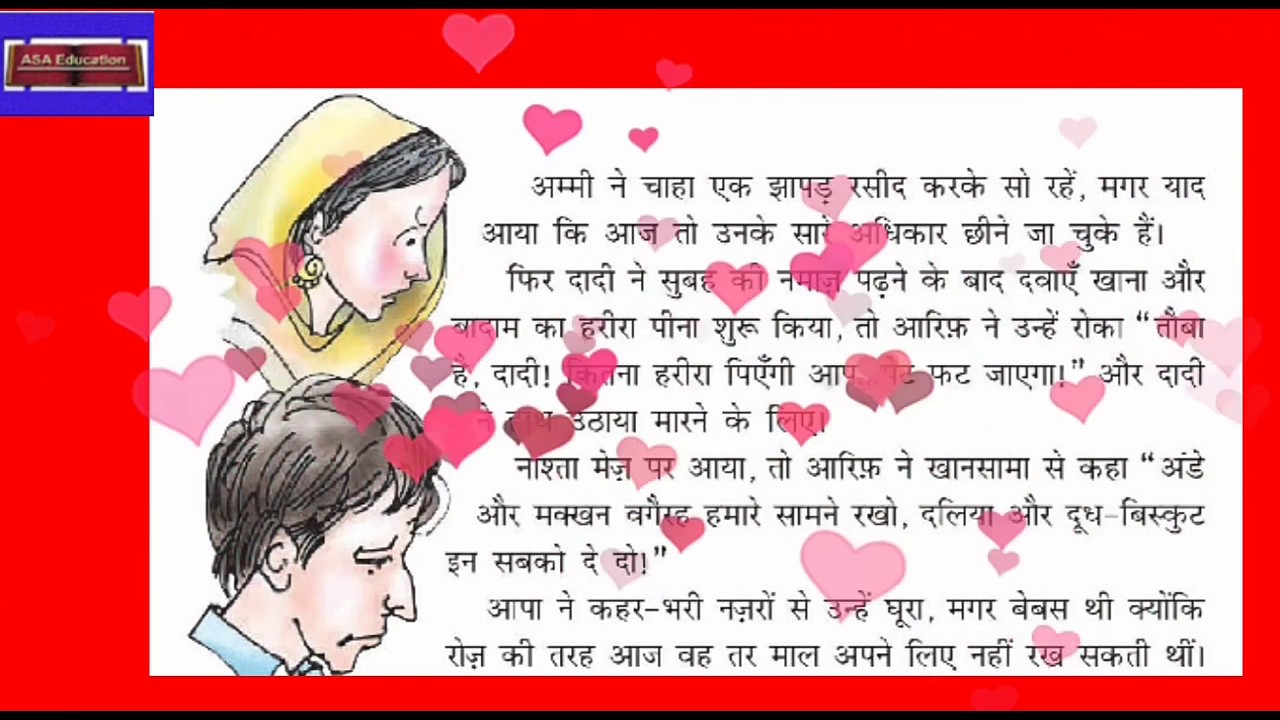 ASA Education
अम्मी ने चाहा एक झापड़ रसीद करके सो रहें, मगर याद
आया कि आज तो उनके सारे अधिकार छीने जा चुके हैं।
फिर दादी ने सुबह की नमाज़ पढ़ने के बाद दवाएँ खाना और
बादाम का हरीरा पीना शुरू किया, तो आरिफ़ ने उन्हें रोका “तौबा
है, दादी! कितना हरीरा पिएँगी आप...पेट फट जाएगा!” और दादी
ने हाथ उठाया मारने के लिए।
नाश्ता मेज़ पर आया, तो आरिफ़ ने खानसामा से कहा “अंडे
और मक्खन वगैरह हमारे सामने रखो, दलिया और दूध-बिस्कुट
इन सबको दे दो!”
आपा ने कहर-भरी नज़रों से उन्हें घूरा, मगर बेबस थी क्योंकि
रोज़ की तरह आज वह तर माल अपने लिए नहीं रख सकती थीं।